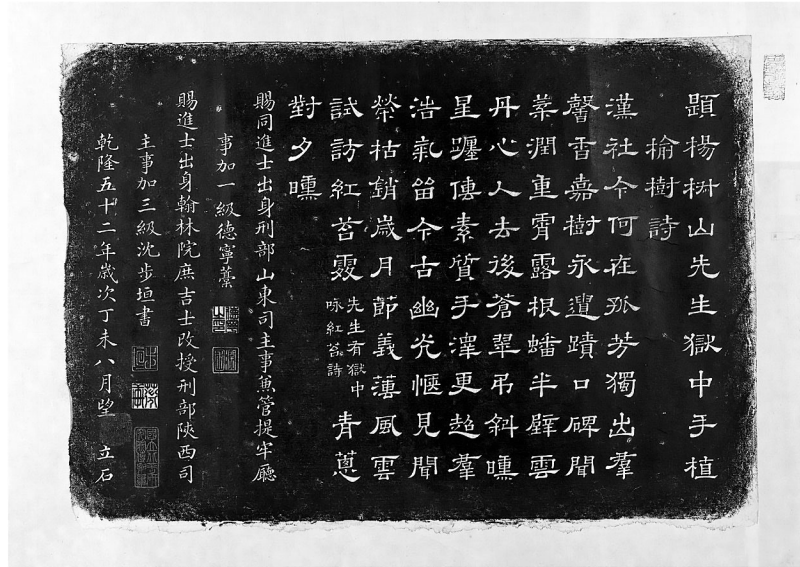 題楊椒山先生獄中手植
榆樹詩
漢社今何在孤芳獨出羣
馨香嘉樹永遺蹟口碑聞
葉潤重霄露根蟠半壁雲
丹心人去後蒼翠弔斜曛
星躔傳素質手澤更超羣
浩氣留今古幽光愜見聞
榮枯銷歲月節義薄風雲
試訪紅苔叕先生有獄中咏紅苔詩青蔥
對夕曛
賜同進士出身刑部山東司主事兼管提牢廳
事加一級德寧藳
賜進士出身翰林院庶吉士改授刑部陝西司
主事加三級沈步垣書
乾隆五十二年歲次丁未八月望 立石